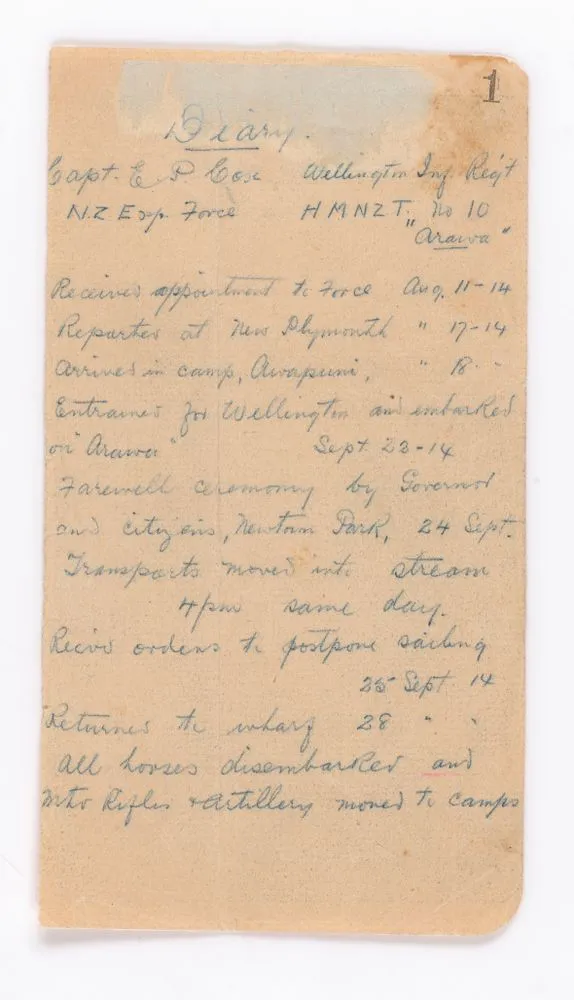 1
Diary.
Capt. E P. Cox Wellington Inf Reg't
N.Z Exp. Force H M N Z T. No 10
"Arawa"
Received appointment to Force Aug. 11-14
Reported at New Plymouth " 17-14
Arrived in camp, Awapuni, " 18 " "
Entrained for Wellington and embarked
on "Arawa" Sept 23-14
Farewell ceremony by Governor
and citizens, Newtown Park, 24 Sept.
Transports moved into stream
4pm same day.
Recivd orders to postpone sailing
25 Sept. 14
Returned to wharf 28 " "
All horses disembarked and
Mtd Rifles & Artillery moved to camps